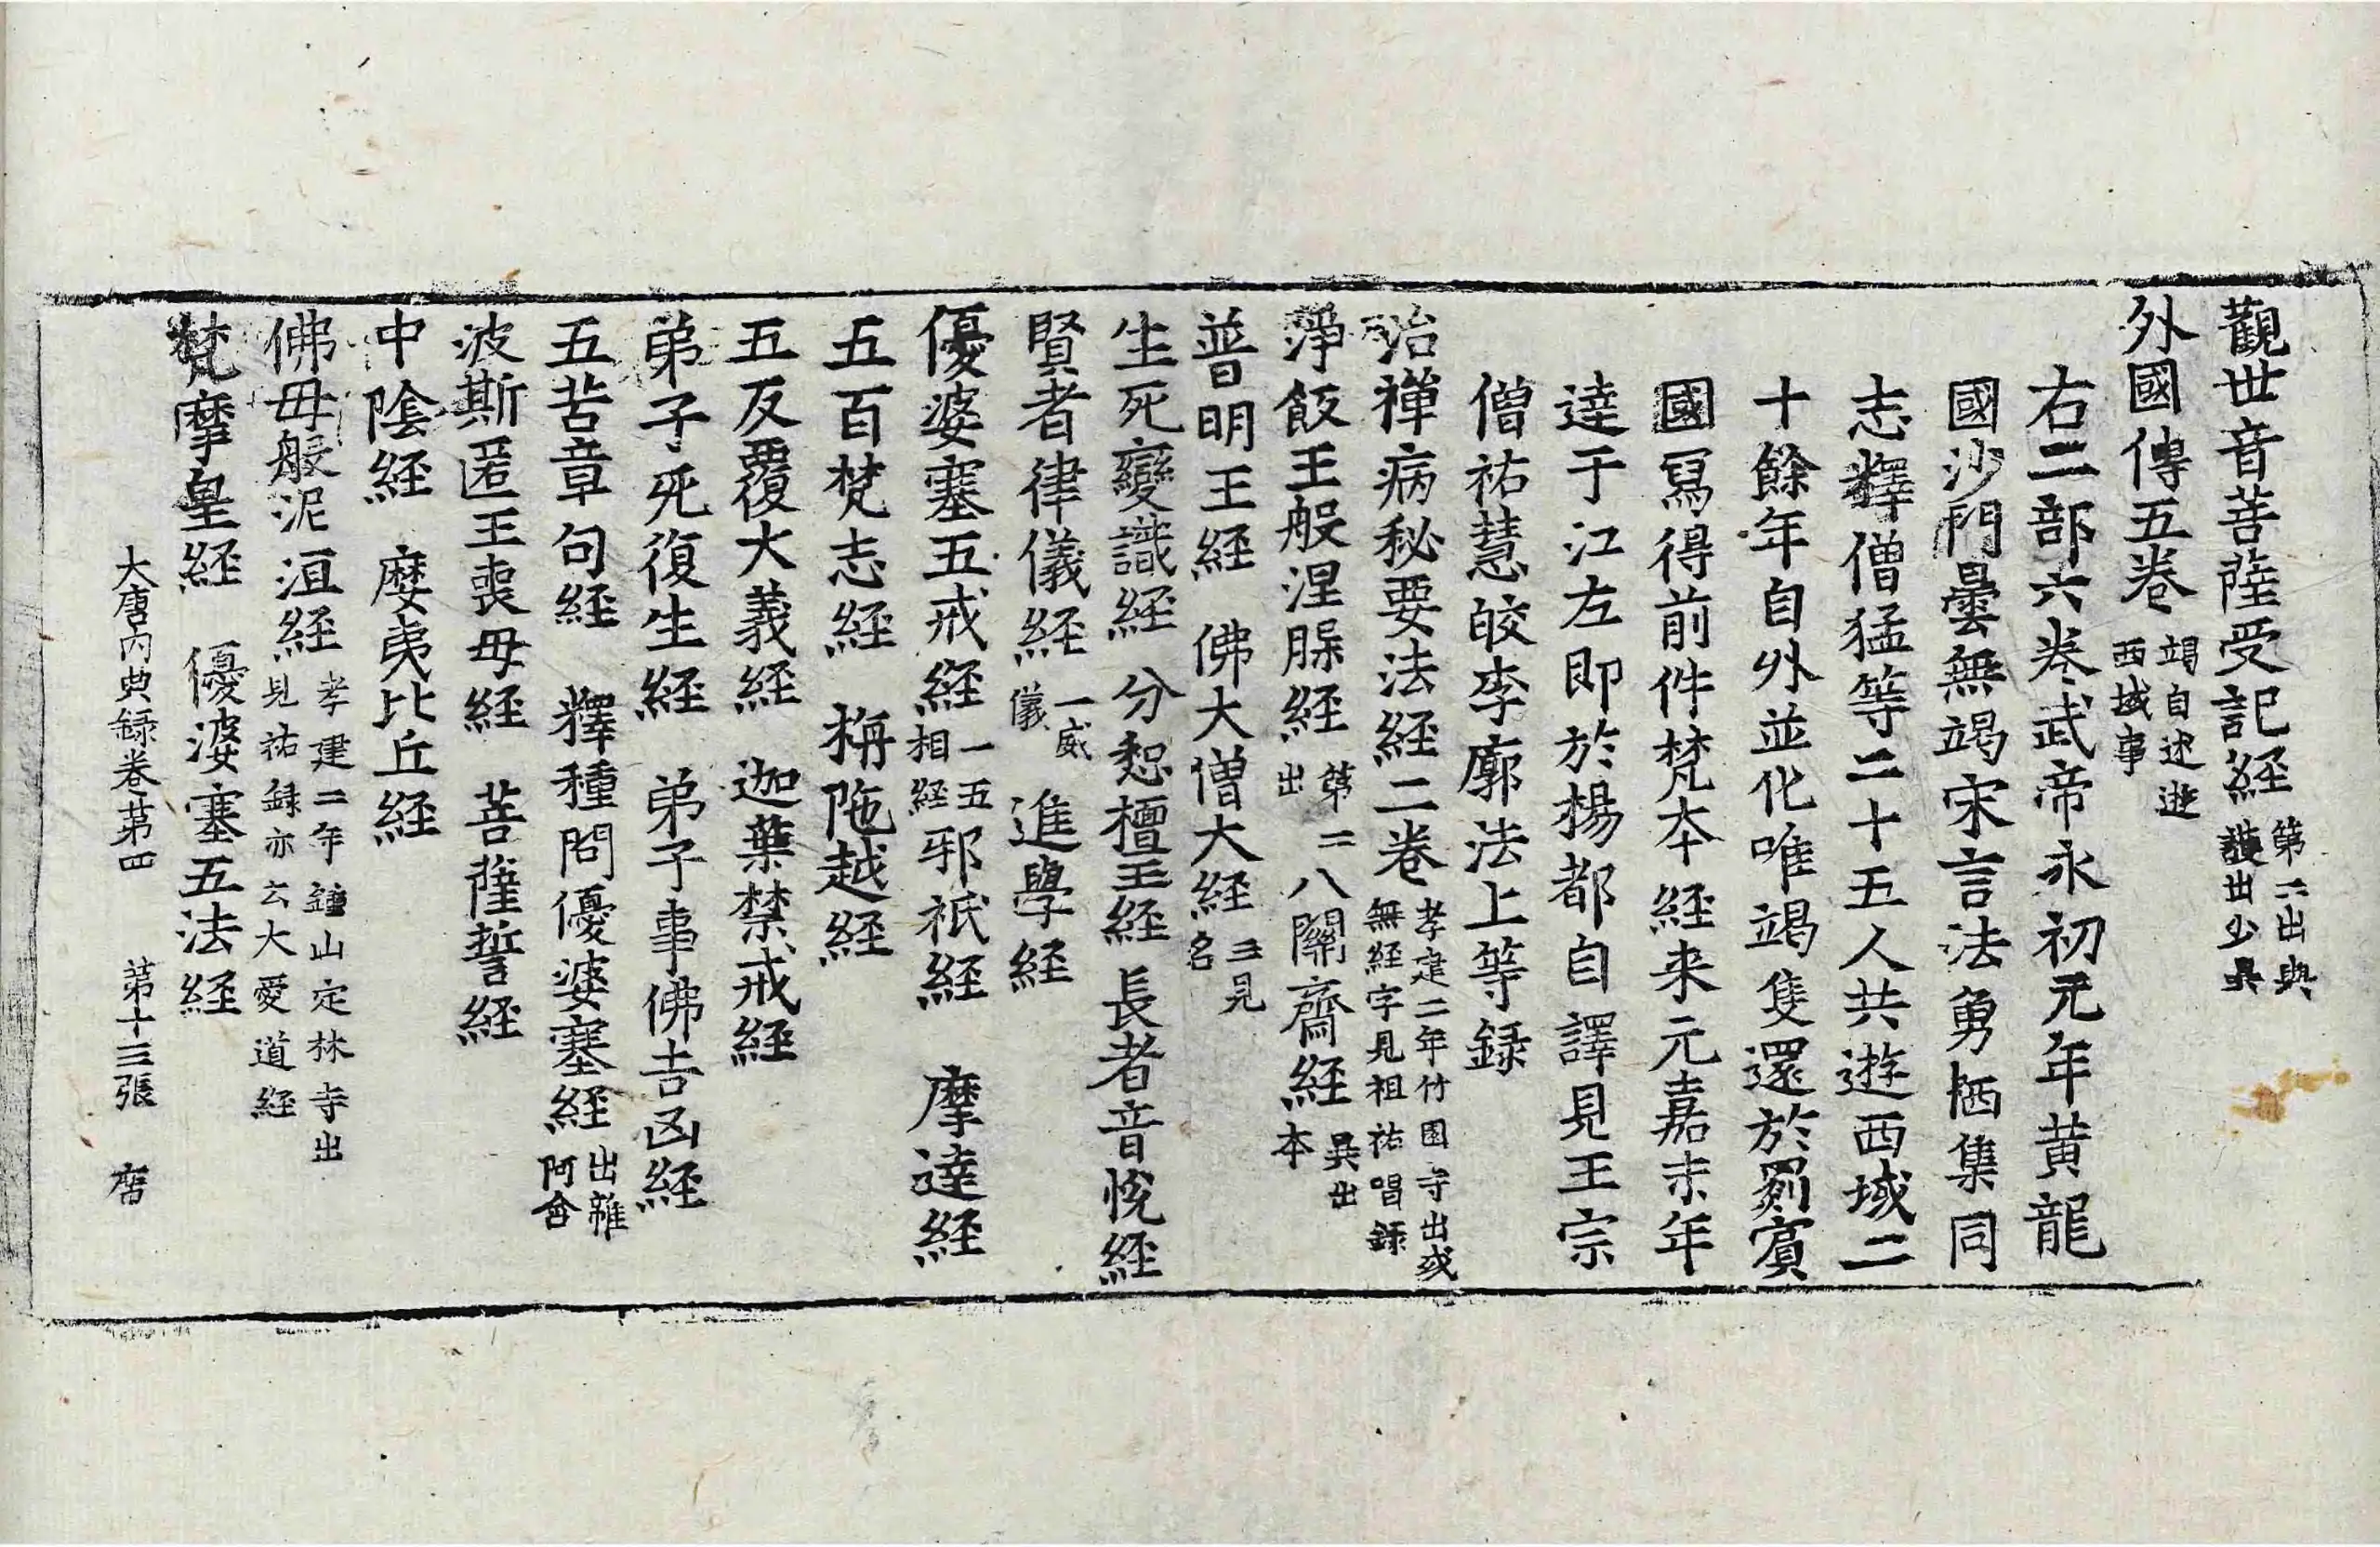 觀世音菩薩受記経第二出與護出少異
外國傳五卷竭自述遊西域事
右二部六卷武帝永初元年黄龍
國沙門曇無竭宋言法勇栖集同
志釋僧猛等二十五人共遊西域二
十餘年自外並化唯竭隻還於罽賓
國冩得前件梵本経来元嘉末年
達于江左即於楊都自譯見王宗
僧祐慧皎李廓法上等録
治禪病秘要法経二卷孝建二年竹園寺出或無経字見祖祐唱録
淨飯王般涅槃経第二出 八關齋経異出本
普明王経 佛大僧大経三見名
生死變識経 分恕檀王経 長者音悅経
賢者律儀経一威儀 進學経
優婆塞五戒経一五相経 邪祇経 摩達経
五百梵志経 栴陁越経
五反覆大義経 迦葉禁戒経
弟子死復生経 弟子事佛吉凶経
五苦章句経 釋種問優婆塞経出雜阿含
波斯匿王喪母経 菩薩誓経
中陰経 摩夷比丘経
佛母般泥洹経孝建二年鍾山定林寺出見祐録亦云大愛道経
梵摩皇経 優婆塞五法経
大唐内典録卷第四 第十三張